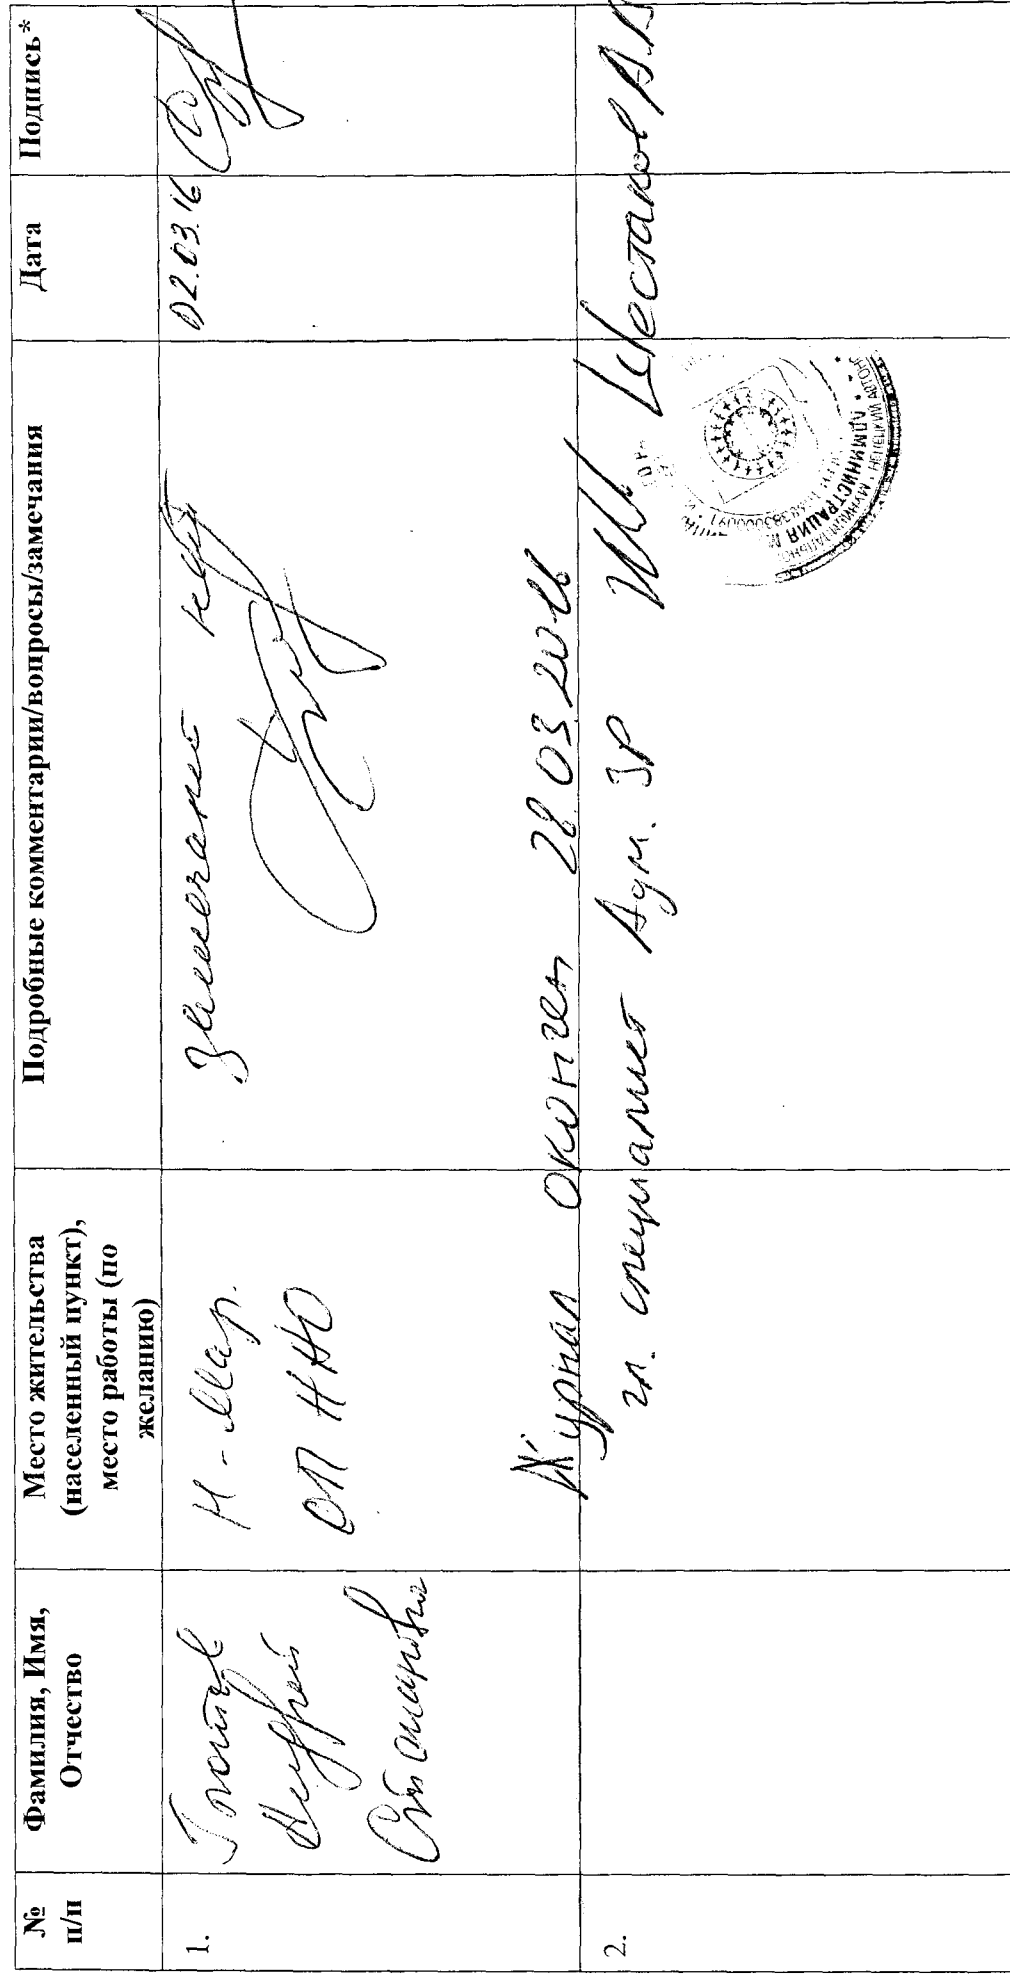 № п/п
Фамилия, Имя, Отчество
Место жительства (населенный пункт), место работы (по желанию)
Подробные комментарии/вопросы/замечания
Дата
Подпись*
1.
Андрей
Н-Мар.
ОП ННО
Замечаний нет
02.03.16
Журнал окончен 28.03.2016
2.
гл. специалист Адм. ЗР
Шестаков А.В
АДМИНИСТРАЦИЯ М